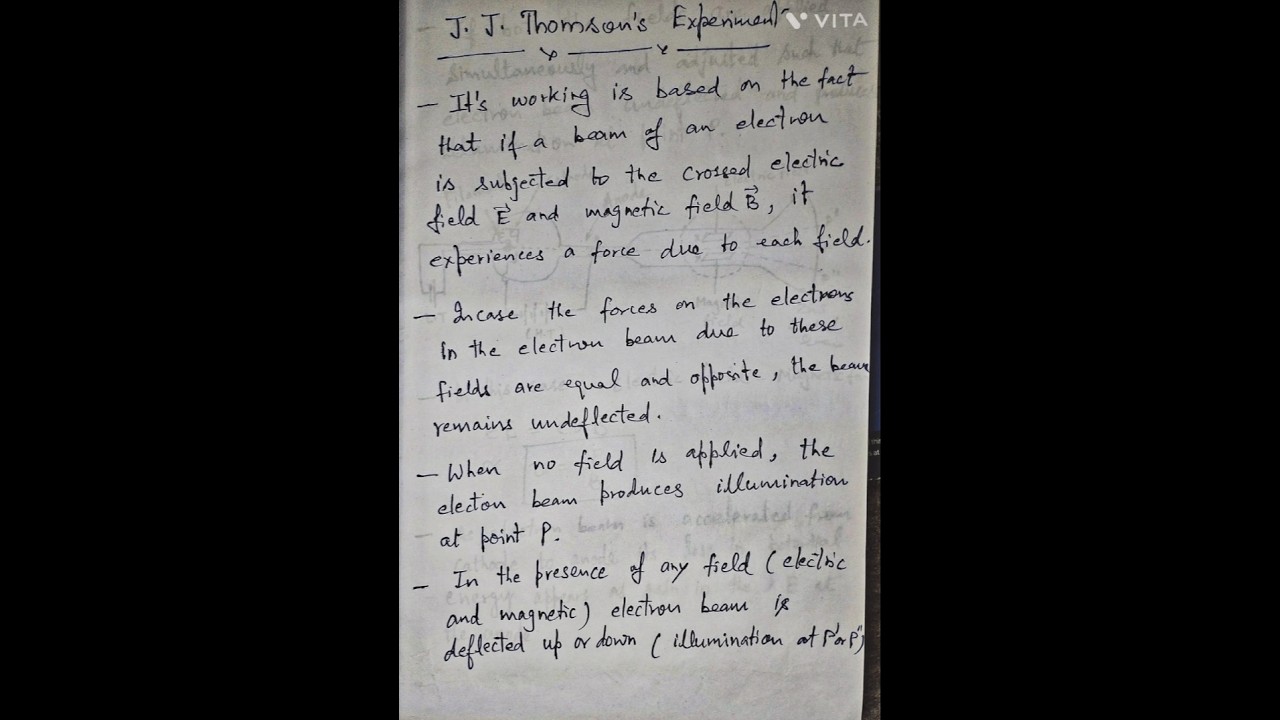 J. J. Thomson's Experiment
VITA
– It's working is based on the fact
that if a beam of an electron
is subjected to the crossed electric
field E⃗ and magnetic field B⃗, it
experiences a force due to each field.
– Incase the forces on the electrons
in the electron beam due to these
fields are equal and opposite, the beam
remains undeflected.
– When no field is applied, the
electon beam produces illumination
at point P.
– In the presence of any field (electric
and magnetic) electron beam is
deflected up or down (illumination at P' or P")